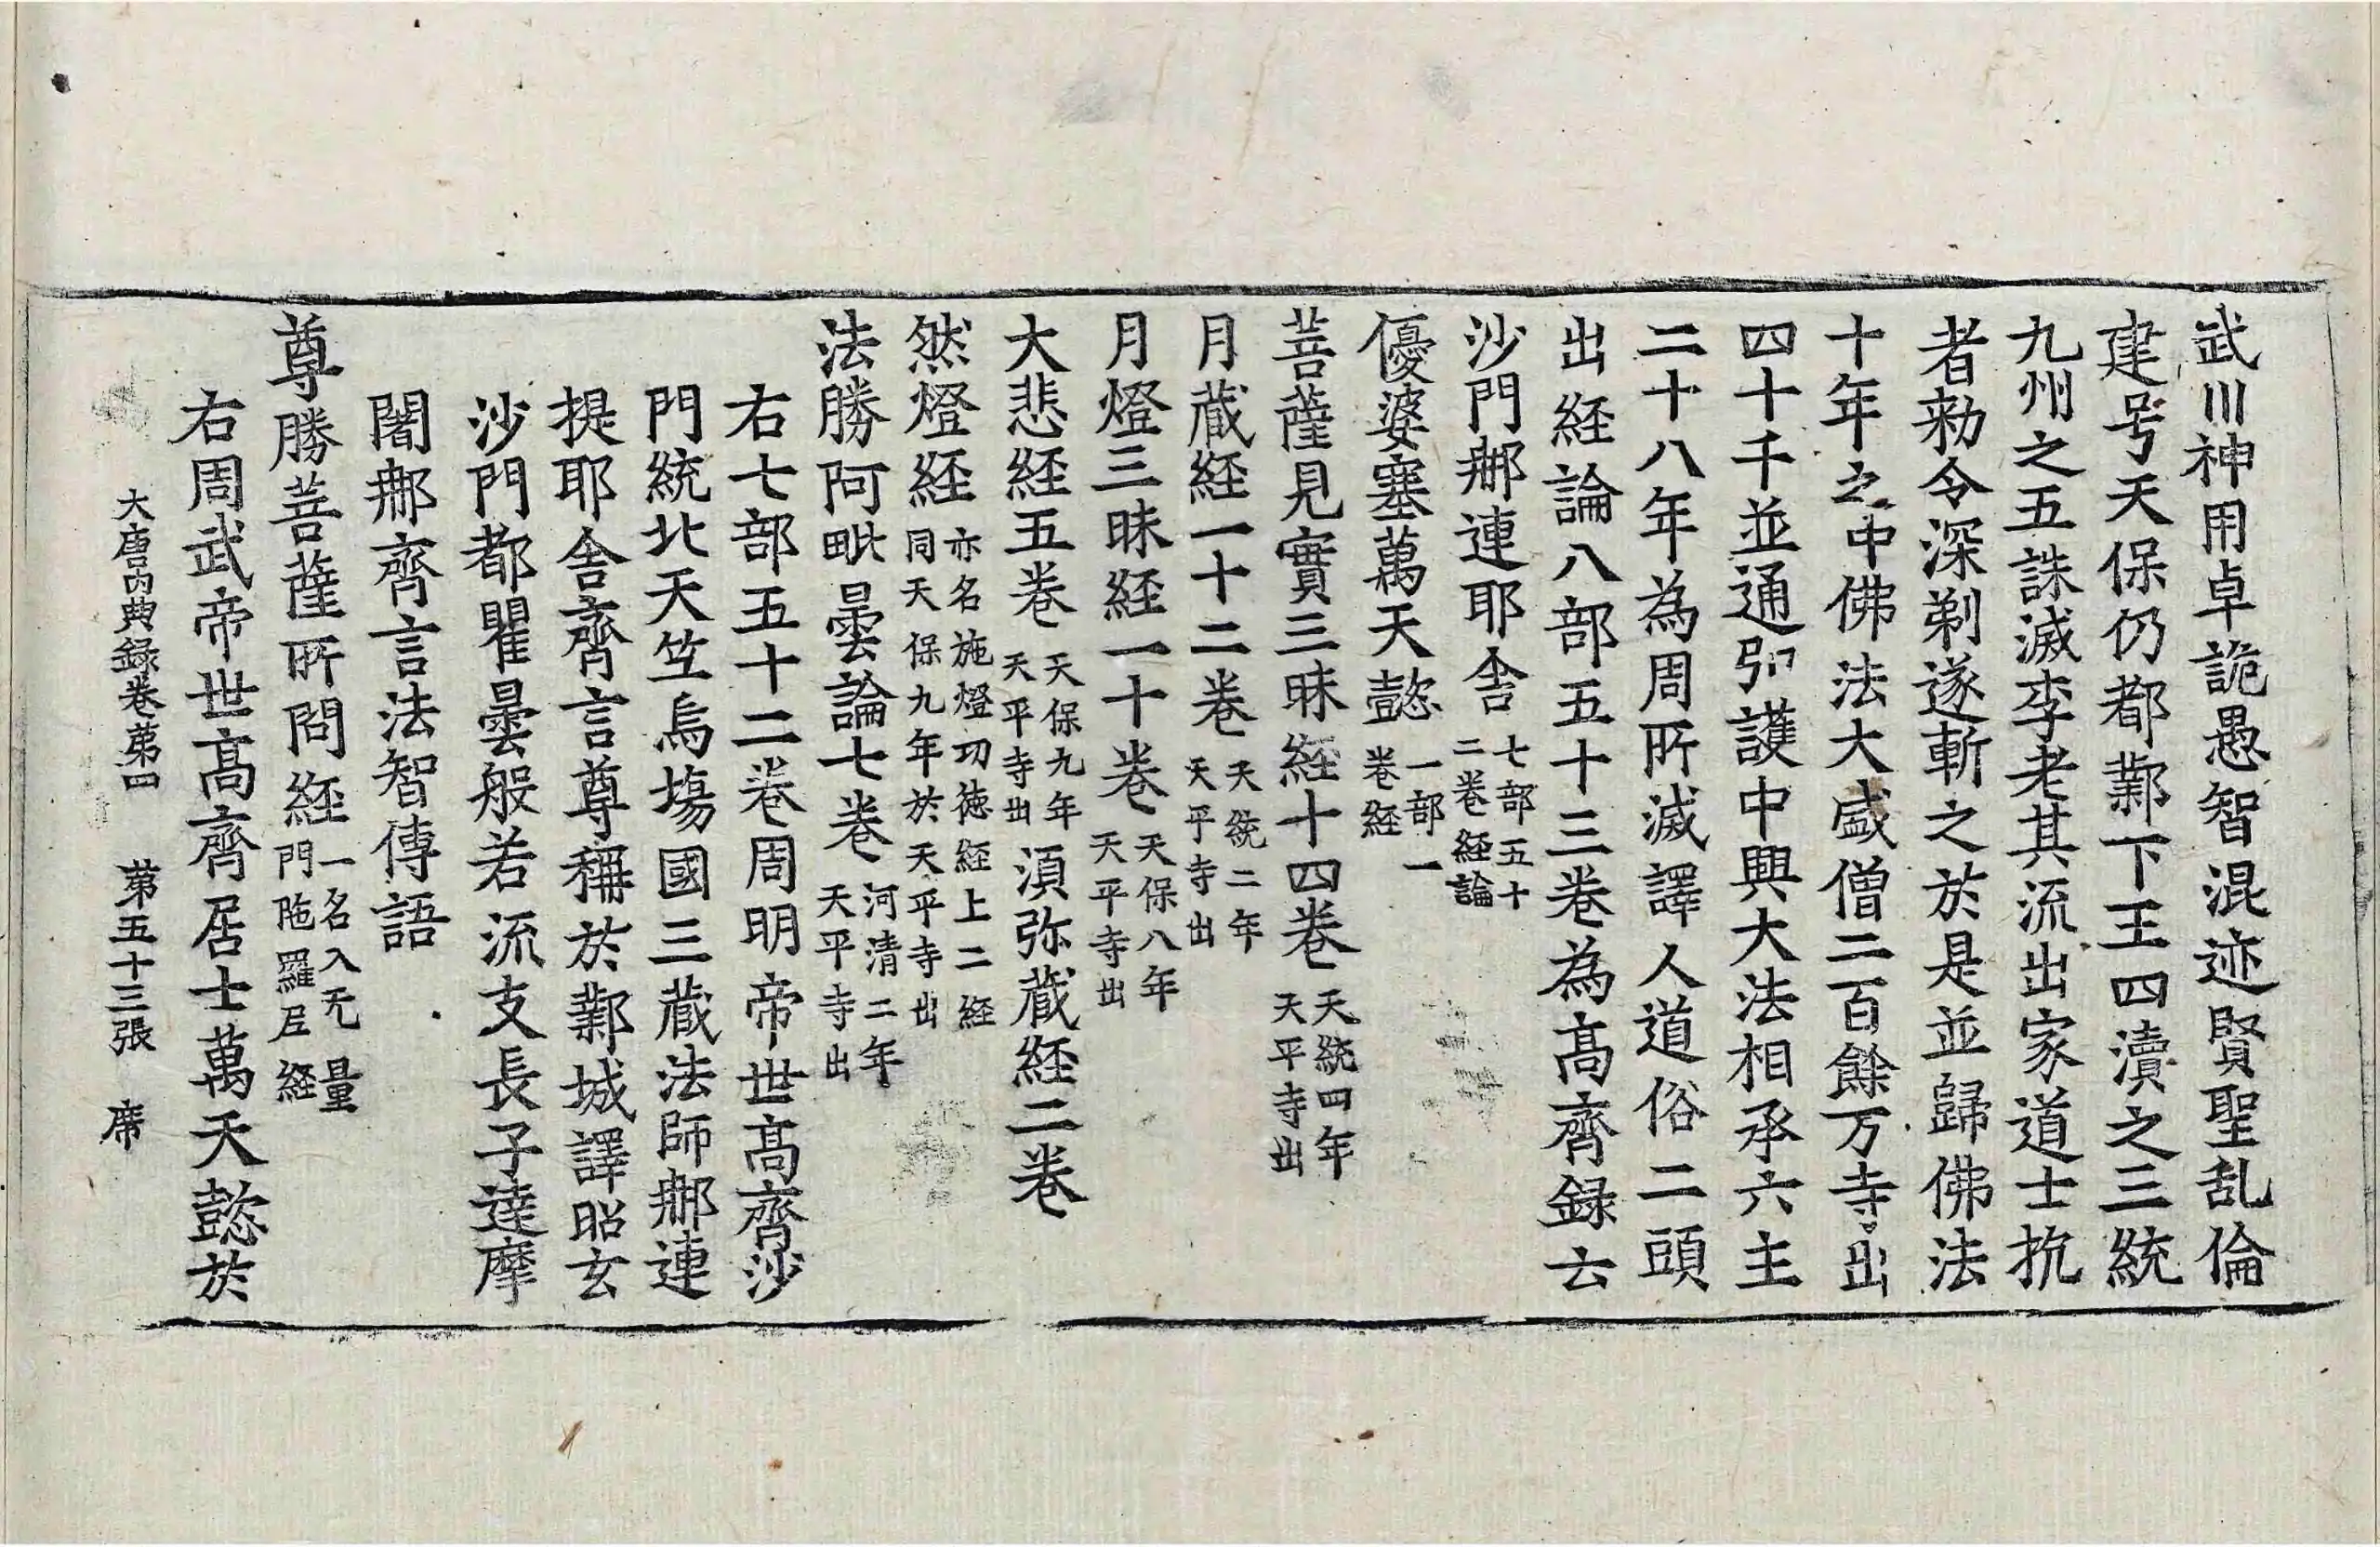 武川神用卓詭愚智混迹賢聖乱倫
建号天保仍都鄴下王四瀆之三統
九州之五誅滅李老其流出家道士抗
者勑令深剃遂斬之於是並歸佛法
十年之中佛法大盛僧二百餘万寺出
四十千並通引護中興大法相承六主
二十八年為周所滅譯人道俗二頭
出経論八部五十三巻為髙齊録云
沙門𨚗連耶舎七部五十二巻経論
優婆塞萬天懿一部一巻経
菩薩見實三昧経十四巻天統四年天平寺出
月蔵経一十二巻天統二年天平寺出
月燈三昧経一十巻天保八年天平寺出
大悲経五巻天保九年天平寺出湏弥蔵経二巻
然燈経亦名施燈功徳経上二経同天保九年於天平寺出
法勝阿毗曇論七巻河清二年天平寺出
右七部五十二巻周明帝世髙齊沙
門統北天竺烏塲國三蔵法師𨚗連
提耶舎齊言尊稱於鄴城譯昭玄
沙門都瞿曇般若流支長子達摩
闍𨚗齊言法智傳語
尊勝菩薩所問経一名入无量門陁羅尼経
右周武帝世髙齊居士萬天懿於
大唐内典録巻苐四 苐五十三張 席